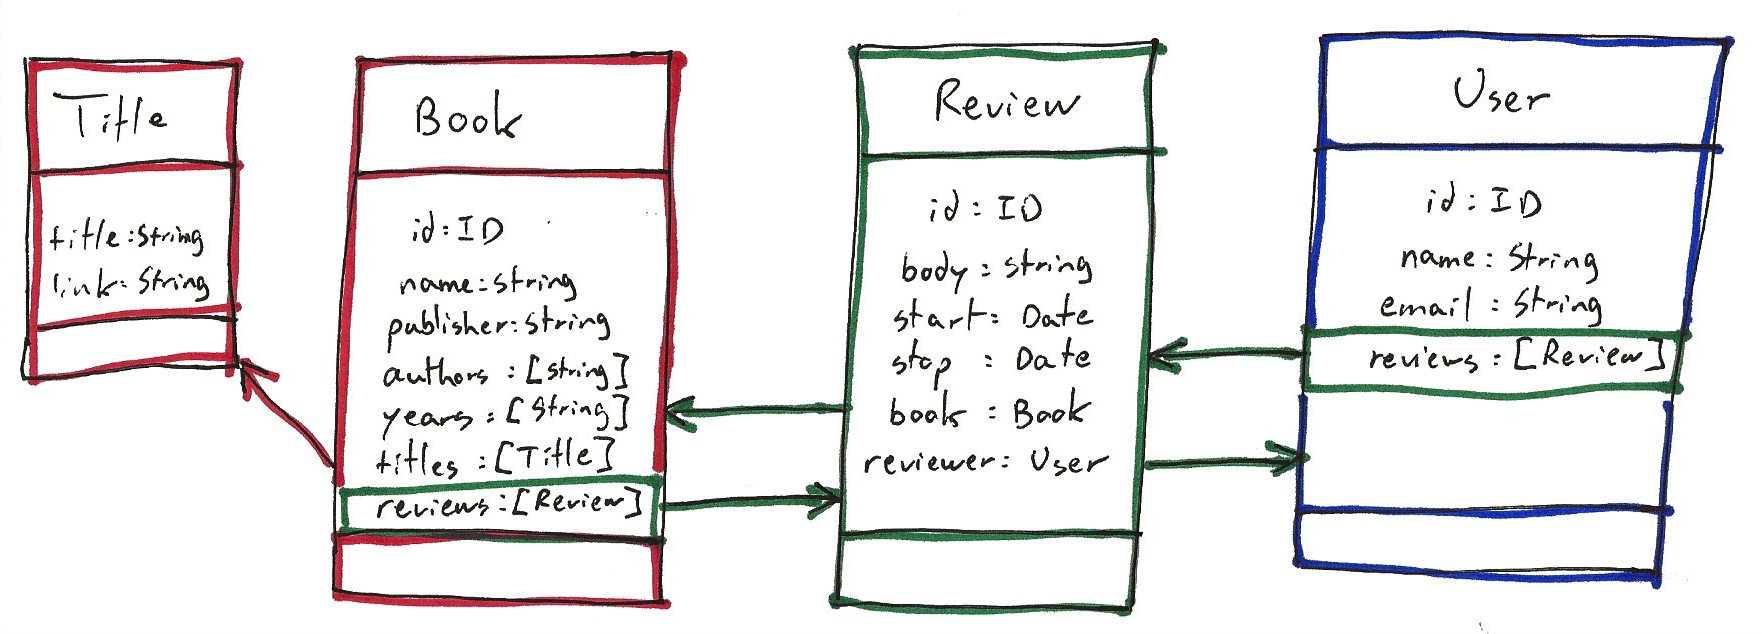 Title
title:String
link:String
Book
id:ID
name:String
publisher:String
authors:[String]
years:[String]
titles:[Title]
reviews:[Review]
Review
id:ID
body:String
start:Date
stop:Date
book:Book
reviewer:User
User
id:ID
name:String
email:String
reviews:[Review]